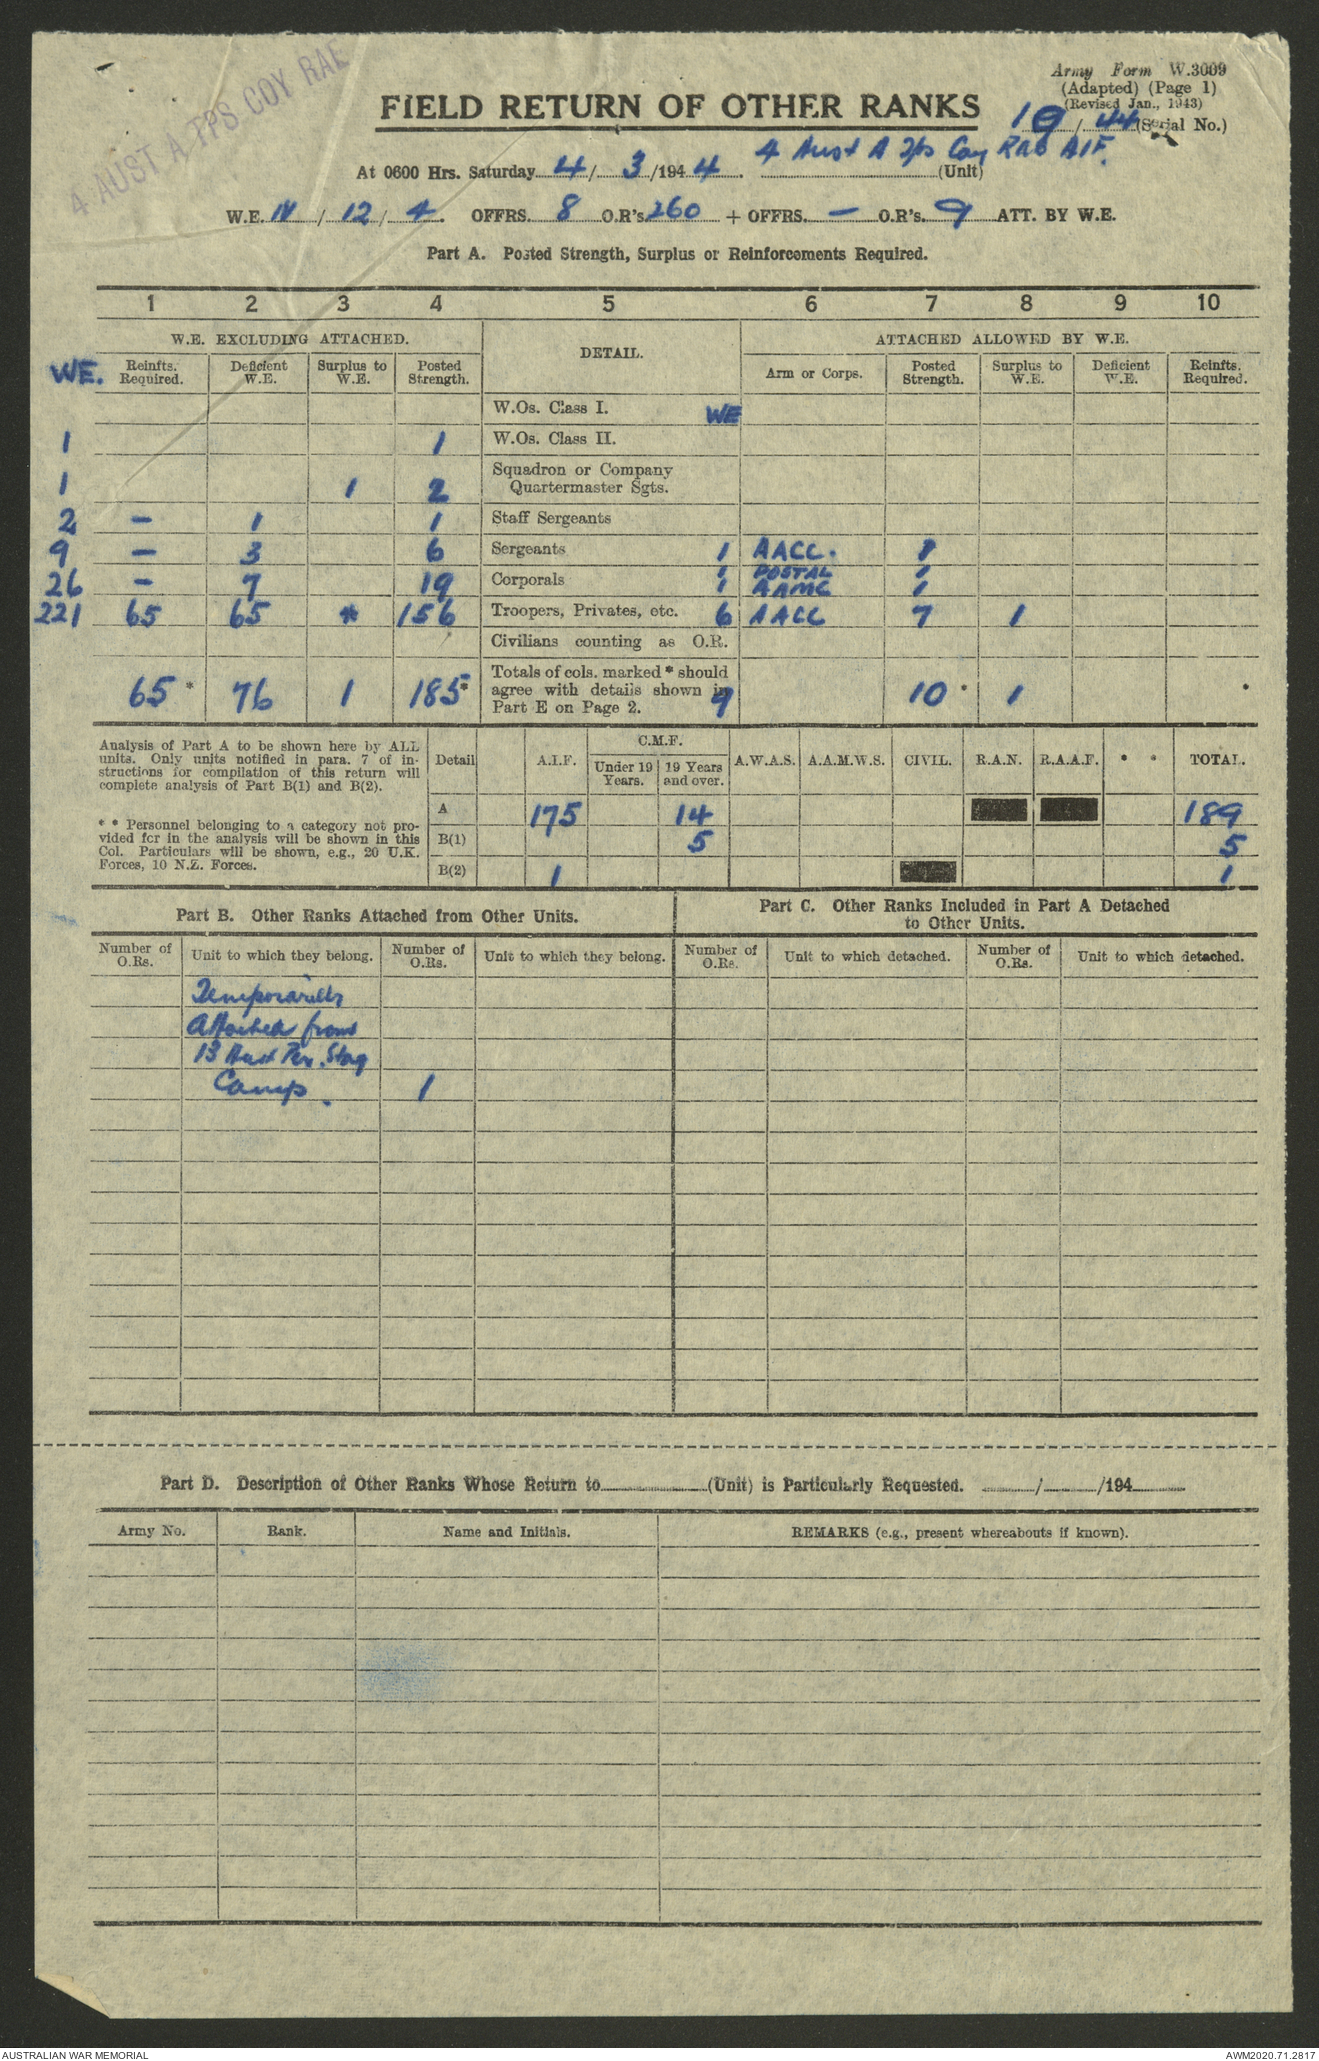 4 AUST A TPS COY RAE
Army Form W.3009
(Adapted) (Page 1)
(Revised Jan., 1943)
FIELD RETURN OF OTHER RANKS
10 / 44 (Serial No.)
At 0600 Hrs. Saturday 4 / 3 /194 4. 4 Aust A Tps Coy RAE AIF. (Unit)
W.E. IV / 12 / 4. OFFRS. 8 O.R's 260 + OFFRS. — O.R's. 9 ATT. BY W.E.
Part A. Posted Strength, Surplus or Reinforcements Required.
1 2 3 4 5 6 7 8 9 10
W.E. EXCLUDING ATTACHED. DETAIL. ATTACHED ALLOWED BY W.E.
WE. Reinfts. Required. Deficient W.E. Surplus to W.E. Posted Strength. Arm or Corps. Posted Strength. Surplus to W.E. Deficient W.E. Reinfts. Required.
W.Os. Class I. WE
1 1 W.Os. Class II.
1 1 2 Squadron or Company Quartermaster Sgts.
2 — 1 1 Staff Sergeants
9 — 3 6 Sergeants 1 AACC. 1
26 — 7 19 Corporals 1 POSTAL 1
1 AAMC 1
221 65 65 * 156 Troopers, Privates, etc. 6 AACC 7 1
Civilians counting as O.R.
65 * 76 1 185* Totals of cols. marked * should agree with details shown in Part E on Page 2. 9 10 1
Analysis of Part A to be shown here by ALL
units. Only units notified in para. 7 of in-
structions for compilation of this return will
complete analysis of Part B(1) and B(2).
* * Personnel belonging to a category not pro-
vided for in the analysis will be shown in this
Col. Particulars will be shown, e.g., 20 U.K.
Forces, 10 N.Z. Forces.
Detail A.I.F. C.M.F. Under 19 Years. 19 Years and over. A.W.A.S. A.A.M.W.S. CIVIL. R.A.N. R.A.A.F. * * TOTAL.
A 175 14 189
B(1) 5 5
B(2) 1 1
Part B. Other Ranks Attached from Other Units.
Part C. Other Ranks Included in Part A Detached
to Other Units.
Number of O.Rs. Unit to which they belong. Number of O.Rs. Unit to which they belong. Number of O.Rs. Unit to which detached. Number of O.Rs. Unit to which detached.
Temporarily
Attached from
13 Aust Per. Stag
Camp. 1
Part D. Description of Other Ranks Whose Return to (Unit) is Particularly Requested. / /194
Army No. Rank. Name and Initials. REMARKS (e.g., present whereabouts if known).
AUSTRALIAN WAR MEMORIAL
AWM2020.71.2817